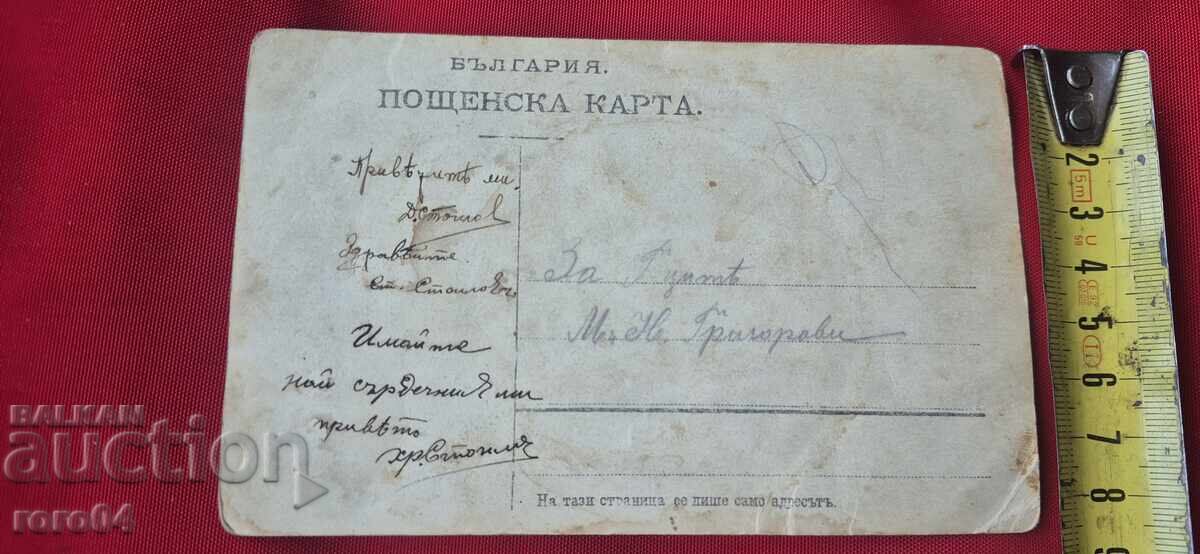 БЪЛГАРИЯ.
ПОЩЕНСКА КАРТА.
ми.
Д. Стоилов
Здравѣйте.
Ст. Стоилов
Имайте
най сърдечния ми
привѣтъ
Хр. Стоил
За
М. Н. Григорови
На тази страница се пише само адресътъ.
BALKAN
auction
roro64
2
3
4
5
6
7
8
9
5m